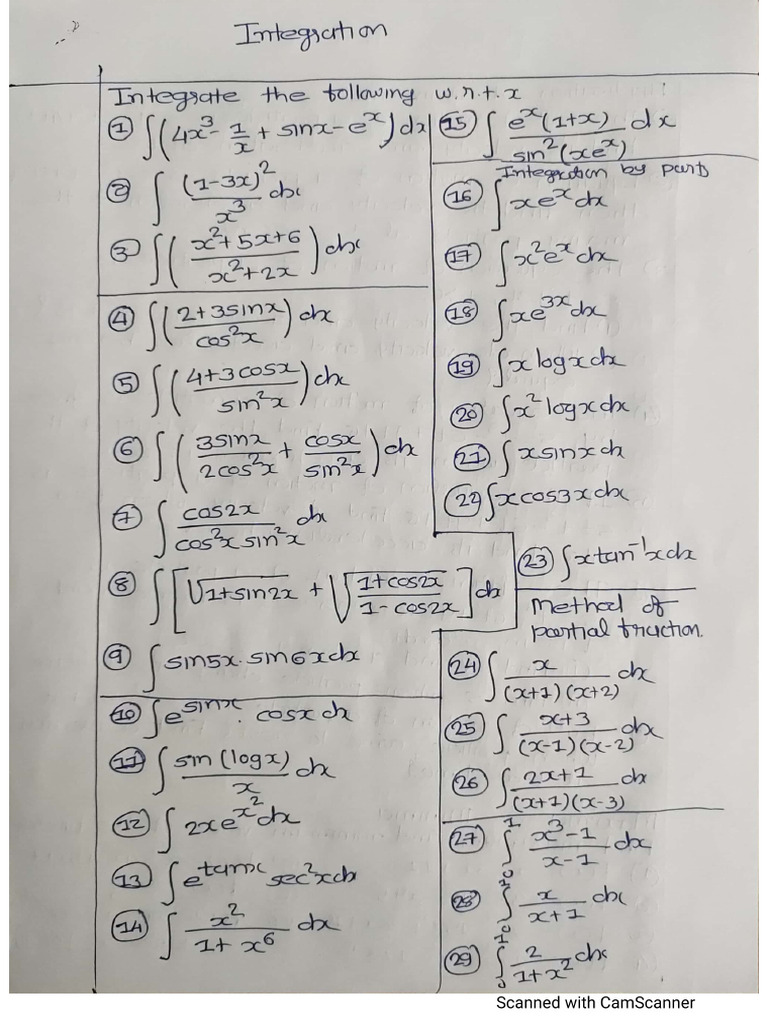 Integration
Integrate the following w.r.t. x
① ∫(4x³ - 1/x + sinx - eˣ) dx
② ∫ (1-3x)²/x³ dx
③ ∫((x²+5x+6)/(x²+2x)) dx
④ ∫((2+3sinx)/cos²x) dx
⑤ ∫((4+3cosx)/sin²x) dx
⑥ ∫(3sinx/2cos²x + cosx/sin²x) dx
⑦ ∫ cos2x/(cos²x sin²x) dx
⑧ ∫[√(1+sin2x) + √((1+cos2x)/(1-cos2x))] dx
⑨ ∫ sin5x. sin6x dx
⑩ ∫e^(sinx). cosx dx
⑪ ∫ sin(logx)/x dx
⑫ ∫ 2xe^(x²) dx
⑬ ∫e^(tanx) sec²x dx
⑭ ∫ x²/(1+x⁶) dx
⑮ ∫ eˣ(1+x)/sin²(xeˣ) dx
Integration by part
⑯ ∫xeˣ dx
⑰ ∫x²eˣ dx
⑱ ∫xe^(3x) dx
⑲ ∫x logx dx
⑳ ∫x² logx dx
㉑ ∫x sinx dx
㉒ ∫x cos3x dx
㉓ ∫x tan⁻¹x dx
Method of
partial fraction.
㉔ ∫ x/((x+1)(x+2)) dx
㉕ ∫ (x+3)/((x-1)(x-2)) dx
㉖ ∫ (2x+1)/((x+1)(x-3)) dx
㉗ ∫₀¹ (x³-1)/(x-1) dx
㉘ ∫₀¹ x/(x+1) dx
㉙ ∫₀¹ 2/(1+x²) dx
Scanned with CamScanner